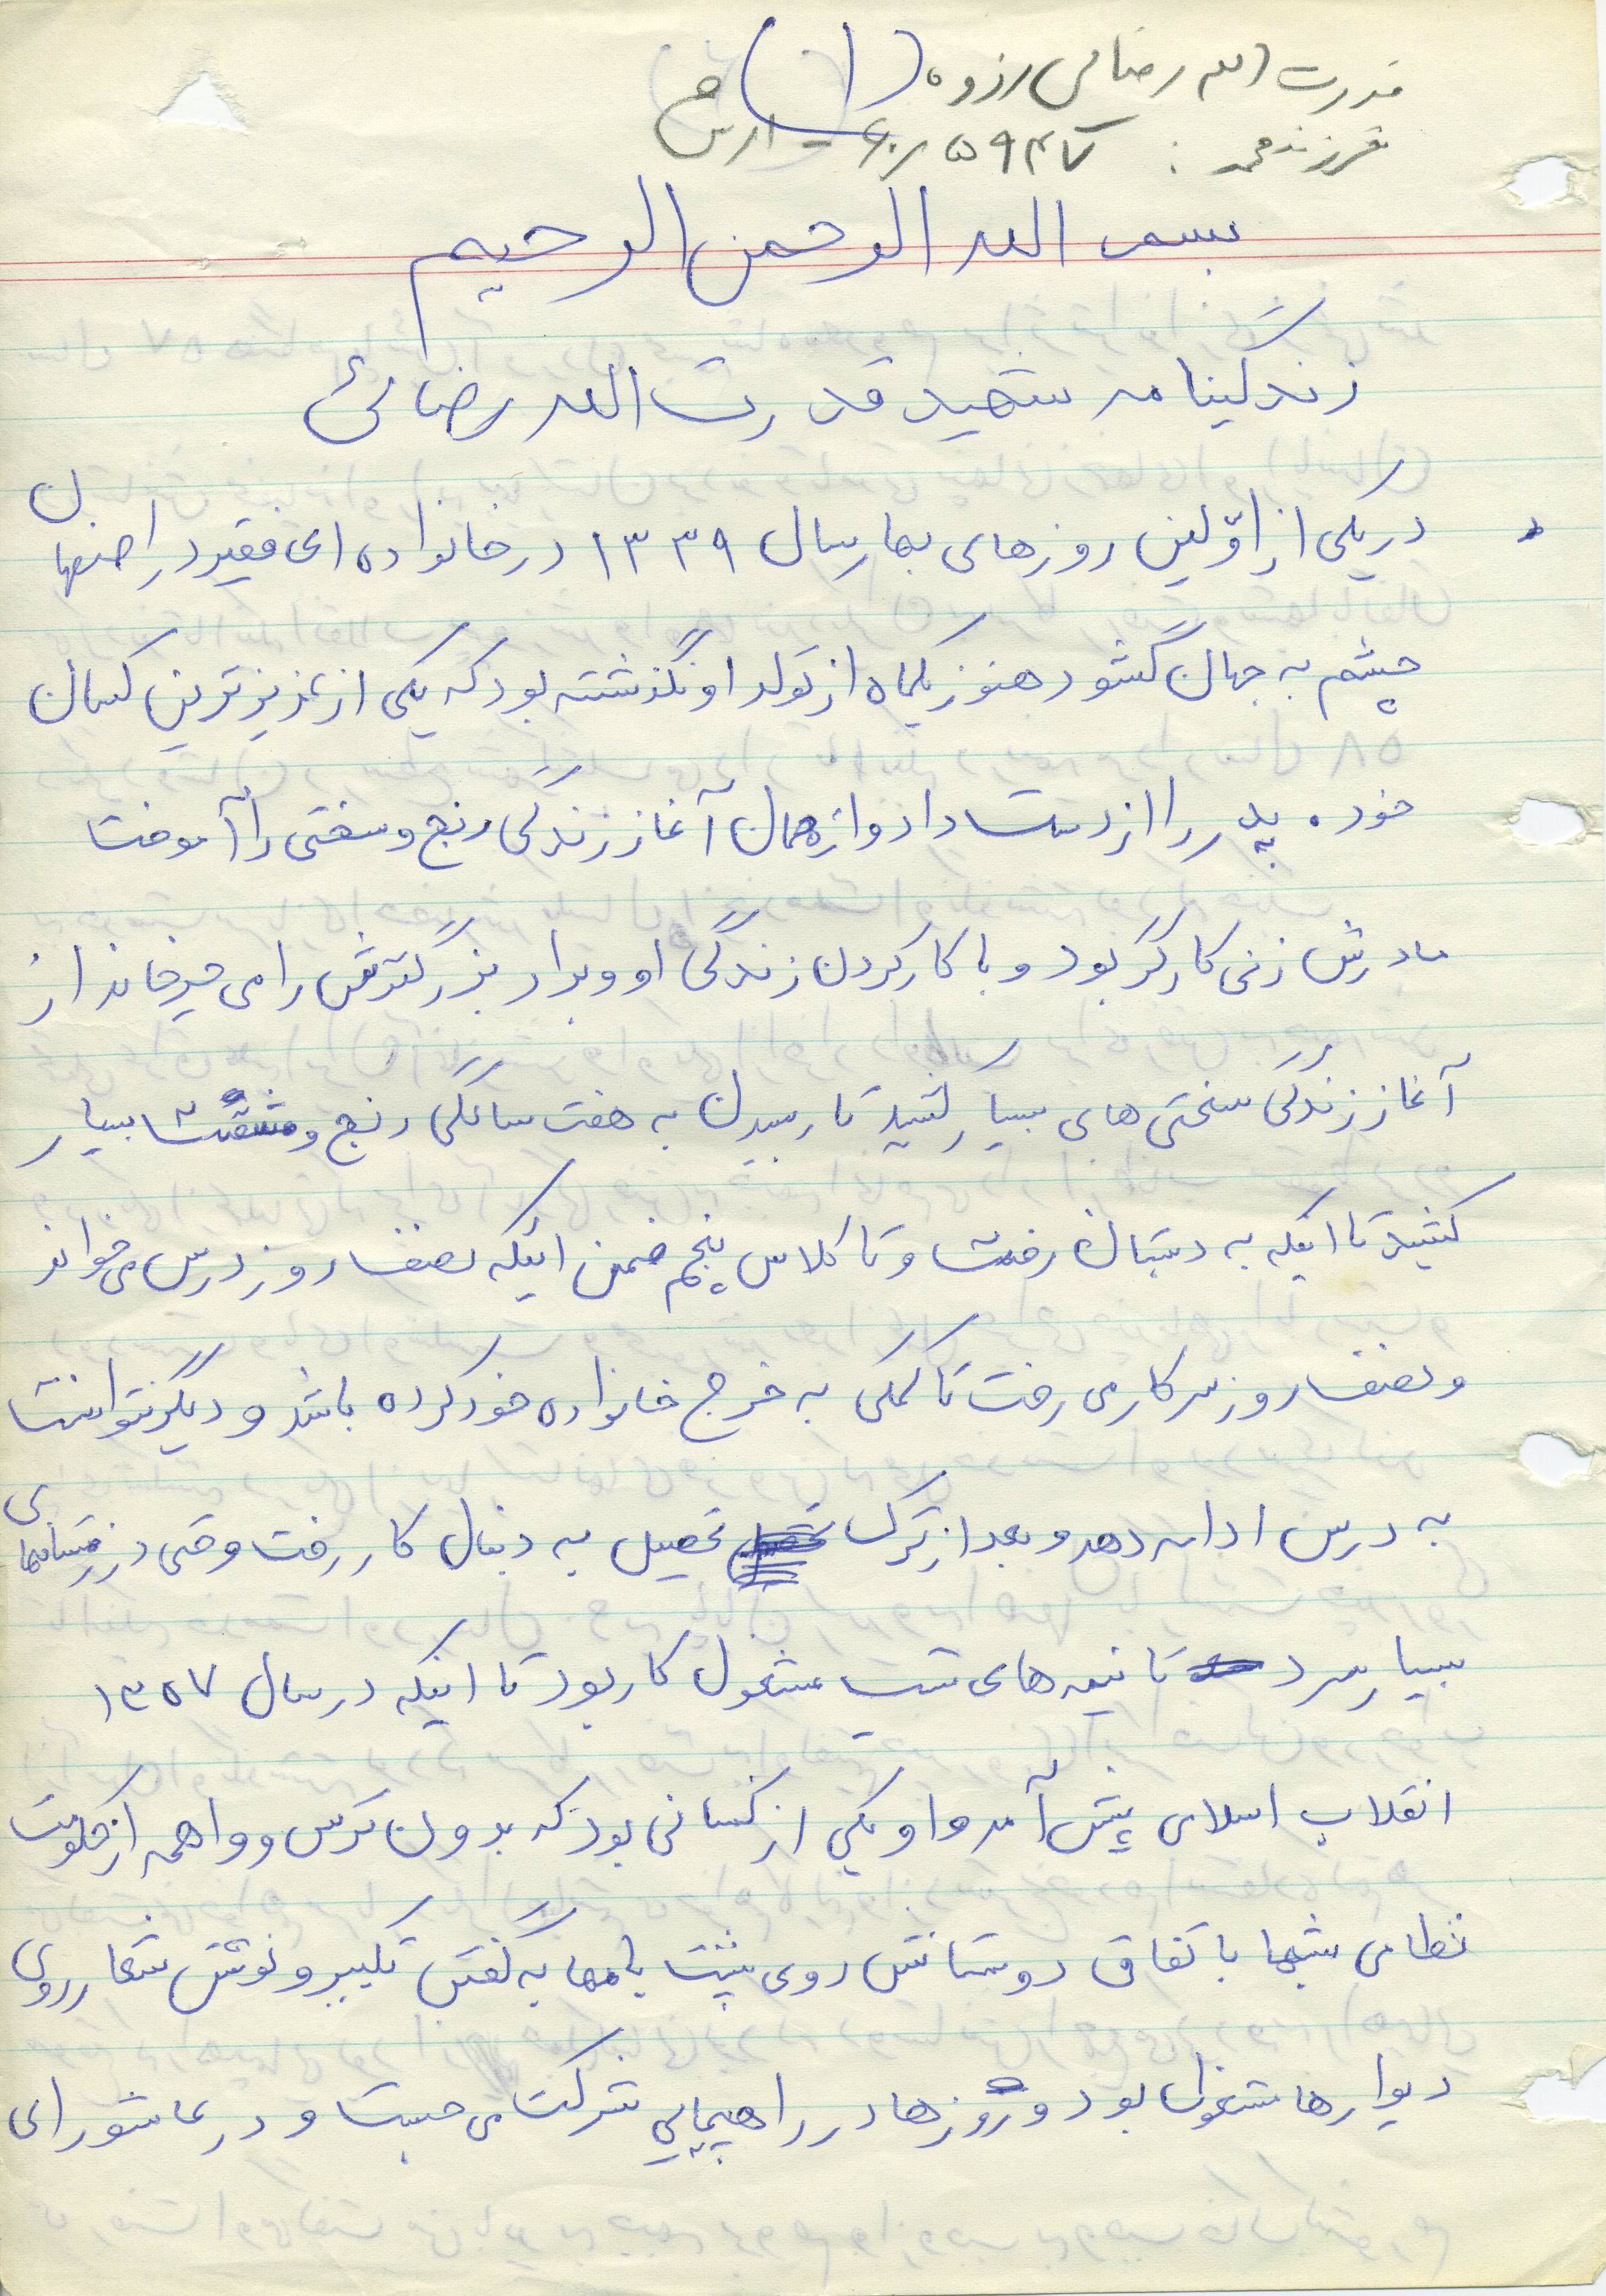 قدرت الله رضائی رزوه
فرزند محمد : ۵۹۴۷
بسم الله الرحمن الرحیم
زندگینامه شهید قدرت الله رضائی
در یکی از اوّلین روزهای بهار سال ۱۳۳۹ در خانواده ای فقیر در اصفهان
چشم به جهان گشود هنوز یکماه از تولد او نگذشته بود که یکی از عزیزترین کسان
خود . پدر را از دست داد و از همان آغاز زندگی رنج و سختی را آموخت
مادرش زنی کارگر بود و با کار کردن زندگی او و برادر بزرگترش را می چرخاند از
آغاز زندگی سختی های بسیار کشید تا رسیدن به هفت سالگی رنج و مشقت بسیار
کشید تا اینکه به دبستان رفت و تا کلاس پنجم ضمن اینکه نصف روز درس می خواند
و نصف روز سر کار می رفت تا کمکی به خرج خانواده خود کرده باشد و دیگر نتوانست
به درس ادامه دهد و بعد از ترک تحصیل به دنبال کار رفت و حتی در زمستانهای
بسیار سرد تا نیمه های شب مشغول کار بود تا اینکه در سال ۱۳۵۷
انقلاب اسلامی پیش آمد و او یکی از کسانی بود که بدون ترس و واهمه از حکومت
نظامی شبها با تفاق دوستانش روی پشت بامها به گفتن تکبیر و نوشتن شعار روی
دیوارها مشغول بود و روزها در راهپیمایی شرکت می جست و در عاشورای